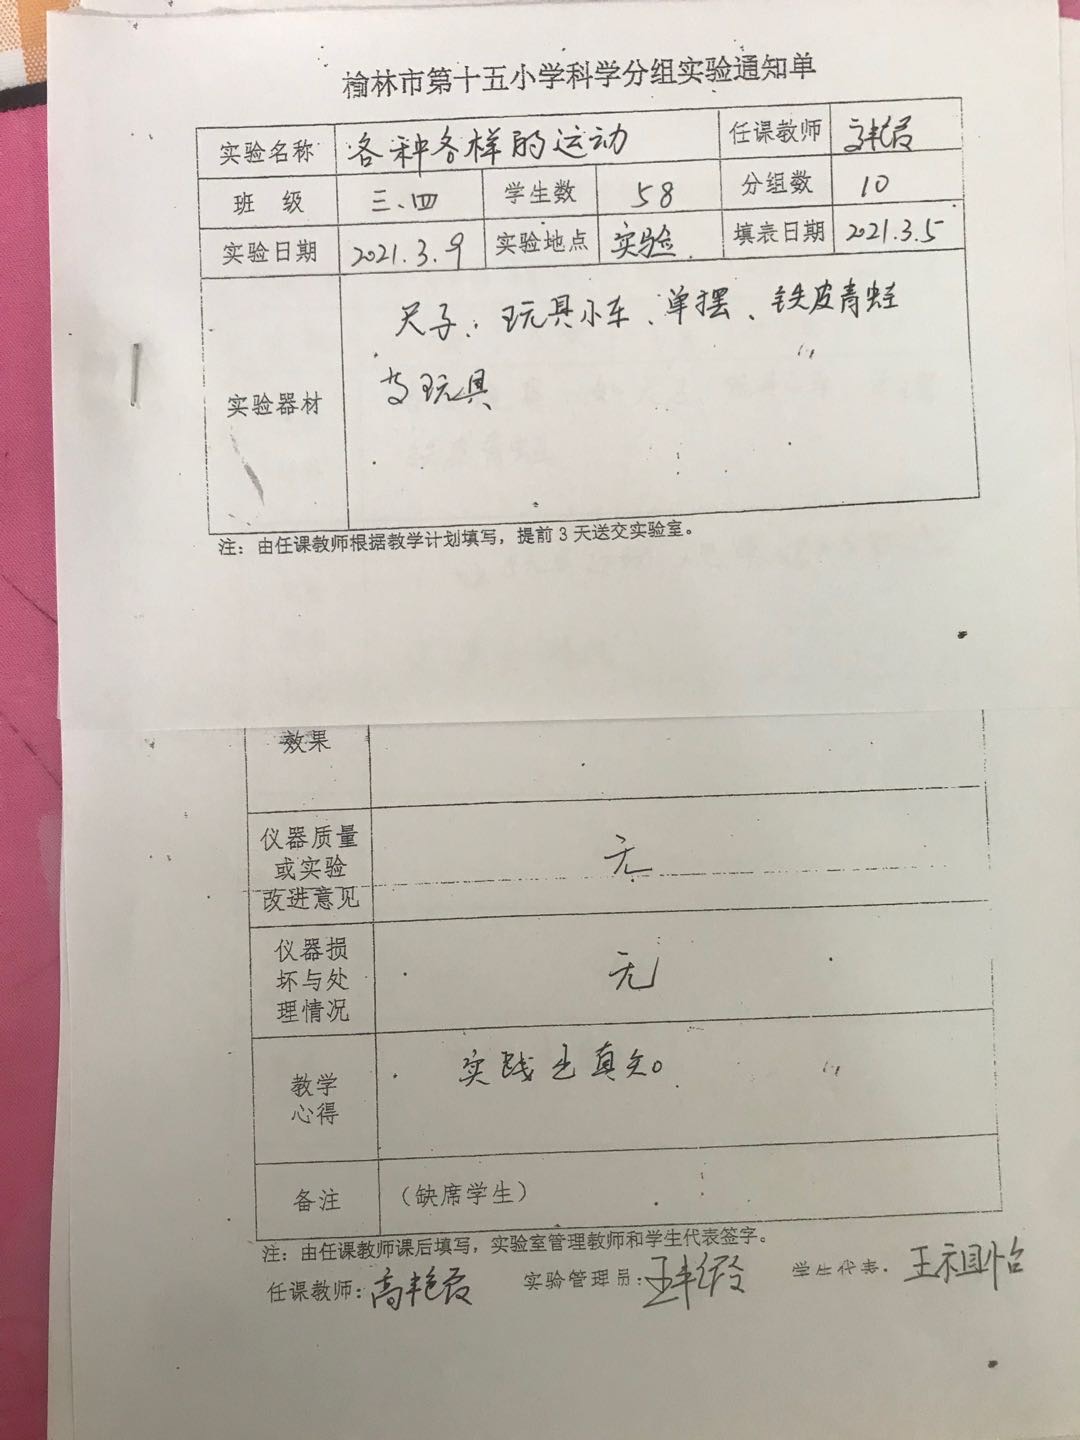 榆林市第十五小学科学分组实验通知单
实验名称 各种各样的运动 任课教师 高艳霞
班 级 三、四 学生数 58 分组数 10
实验日期 2021.3.9 实验地点 实验 填表日期 2021.3.5
实验器材
尺子、玩具小车、单摆、铁皮青蛙
玩具
注：由任课教师根据教学计划填写，提前3天送交实验室。
效果
仪器质量
或实验
改进意见
无
仪器损
坏与处
理情况
无
教学
心得
实践出真知。
备注 （缺席学生）
注：由任课教师课后填写，实验室管理教师和学生代表签字。
任课教师：高艳霞 实验管理员： 学生代表： 王祖怡